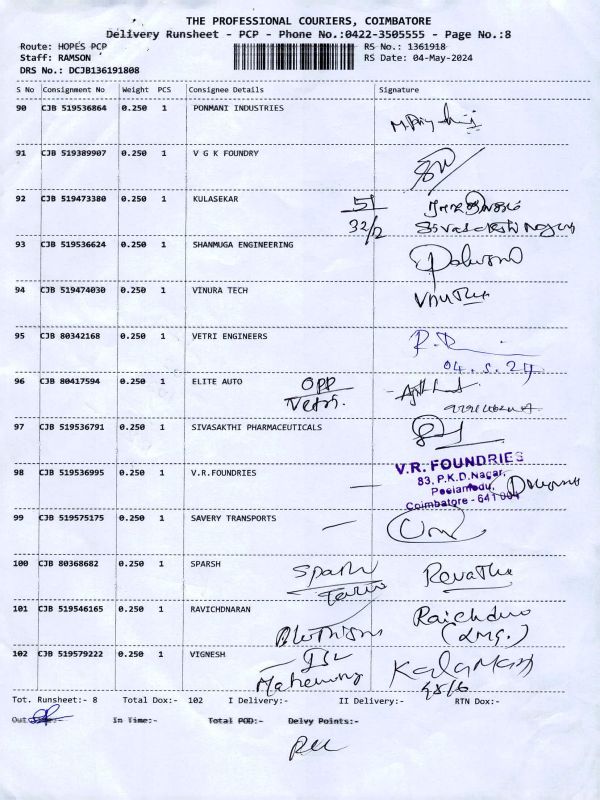 THE PROFESSIONAL COURIERS, COIMBATORE
Delivery Runsheet - PCP - Phone No.:0422-3505555 - Page No.:8
Route: HOPES PCP RS No.: 1361918
Staff: RAMSON RS Date: 04-May-2024
DRS No.: DCJB136191808
S No Consignment No Weight PCS Consignee Details Signature
90 CJB 519536864 0.250 1 PONMANI INDUSTRIES
91 CJB 519389907 0.250 1 V G K FOUNDRY
92 CJB 519473380 0.250 1 KULASEKAR 51
32/2
93 CJB 519536624 0.250 1 SHANMUGA ENGINEERING
94 CJB 519474030 0.250 1 VINURA TECH
95 CJB 80342168 0.250 1 VETRI ENGINEERS
04.5.24
96 CJB 80417594 0.250 1 ELITE AUTO OPP
97 CJB 519536791 0.250 1 SIVASAKTHI PHARMACEUTICALS
98 CJB 519536995 0.250 1 V.R.FOUNDRIES V.R. FOUNDRIES
83, P.K.D.Nagar,
Peelamedu,
Coimbatore - 641 004
99 CJB 519575175 0.250 1 SAVERY TRANSPORTS
100 CJB 80368682 0.250 1 SPARSH Sparsh Revathi
101 CJB 519546165 0.250 1 RAVICHDNARAN
102 CJB 519579222 0.250 1 VIGNESH
Tot. Runsheet:- 8 Total Dox:- 102 I Delivery:- II Delivery:- RTN Dox:-
Out In Time:- Total POD:- Delvy Points:-